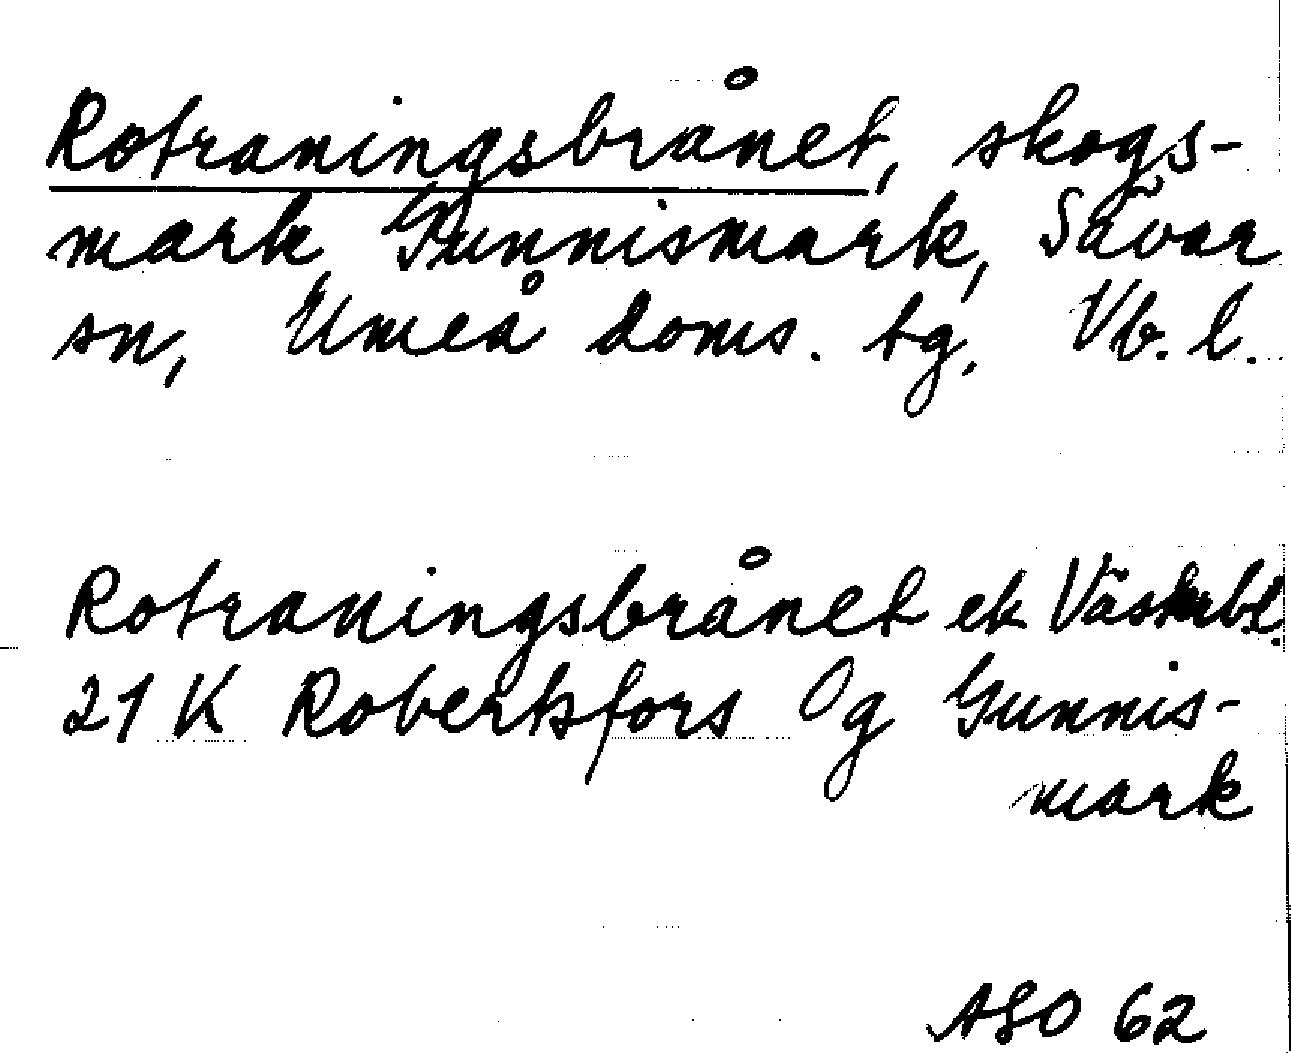 Rotraningsbrånet, skogs-
mark, Gunnismark, Sävar
sn, Umeå doms. tg. Vb. l.
Rotraningsbrånet ek Västerbl.
21 K Robertsfors Og Gunnis-
mark
ASO 62